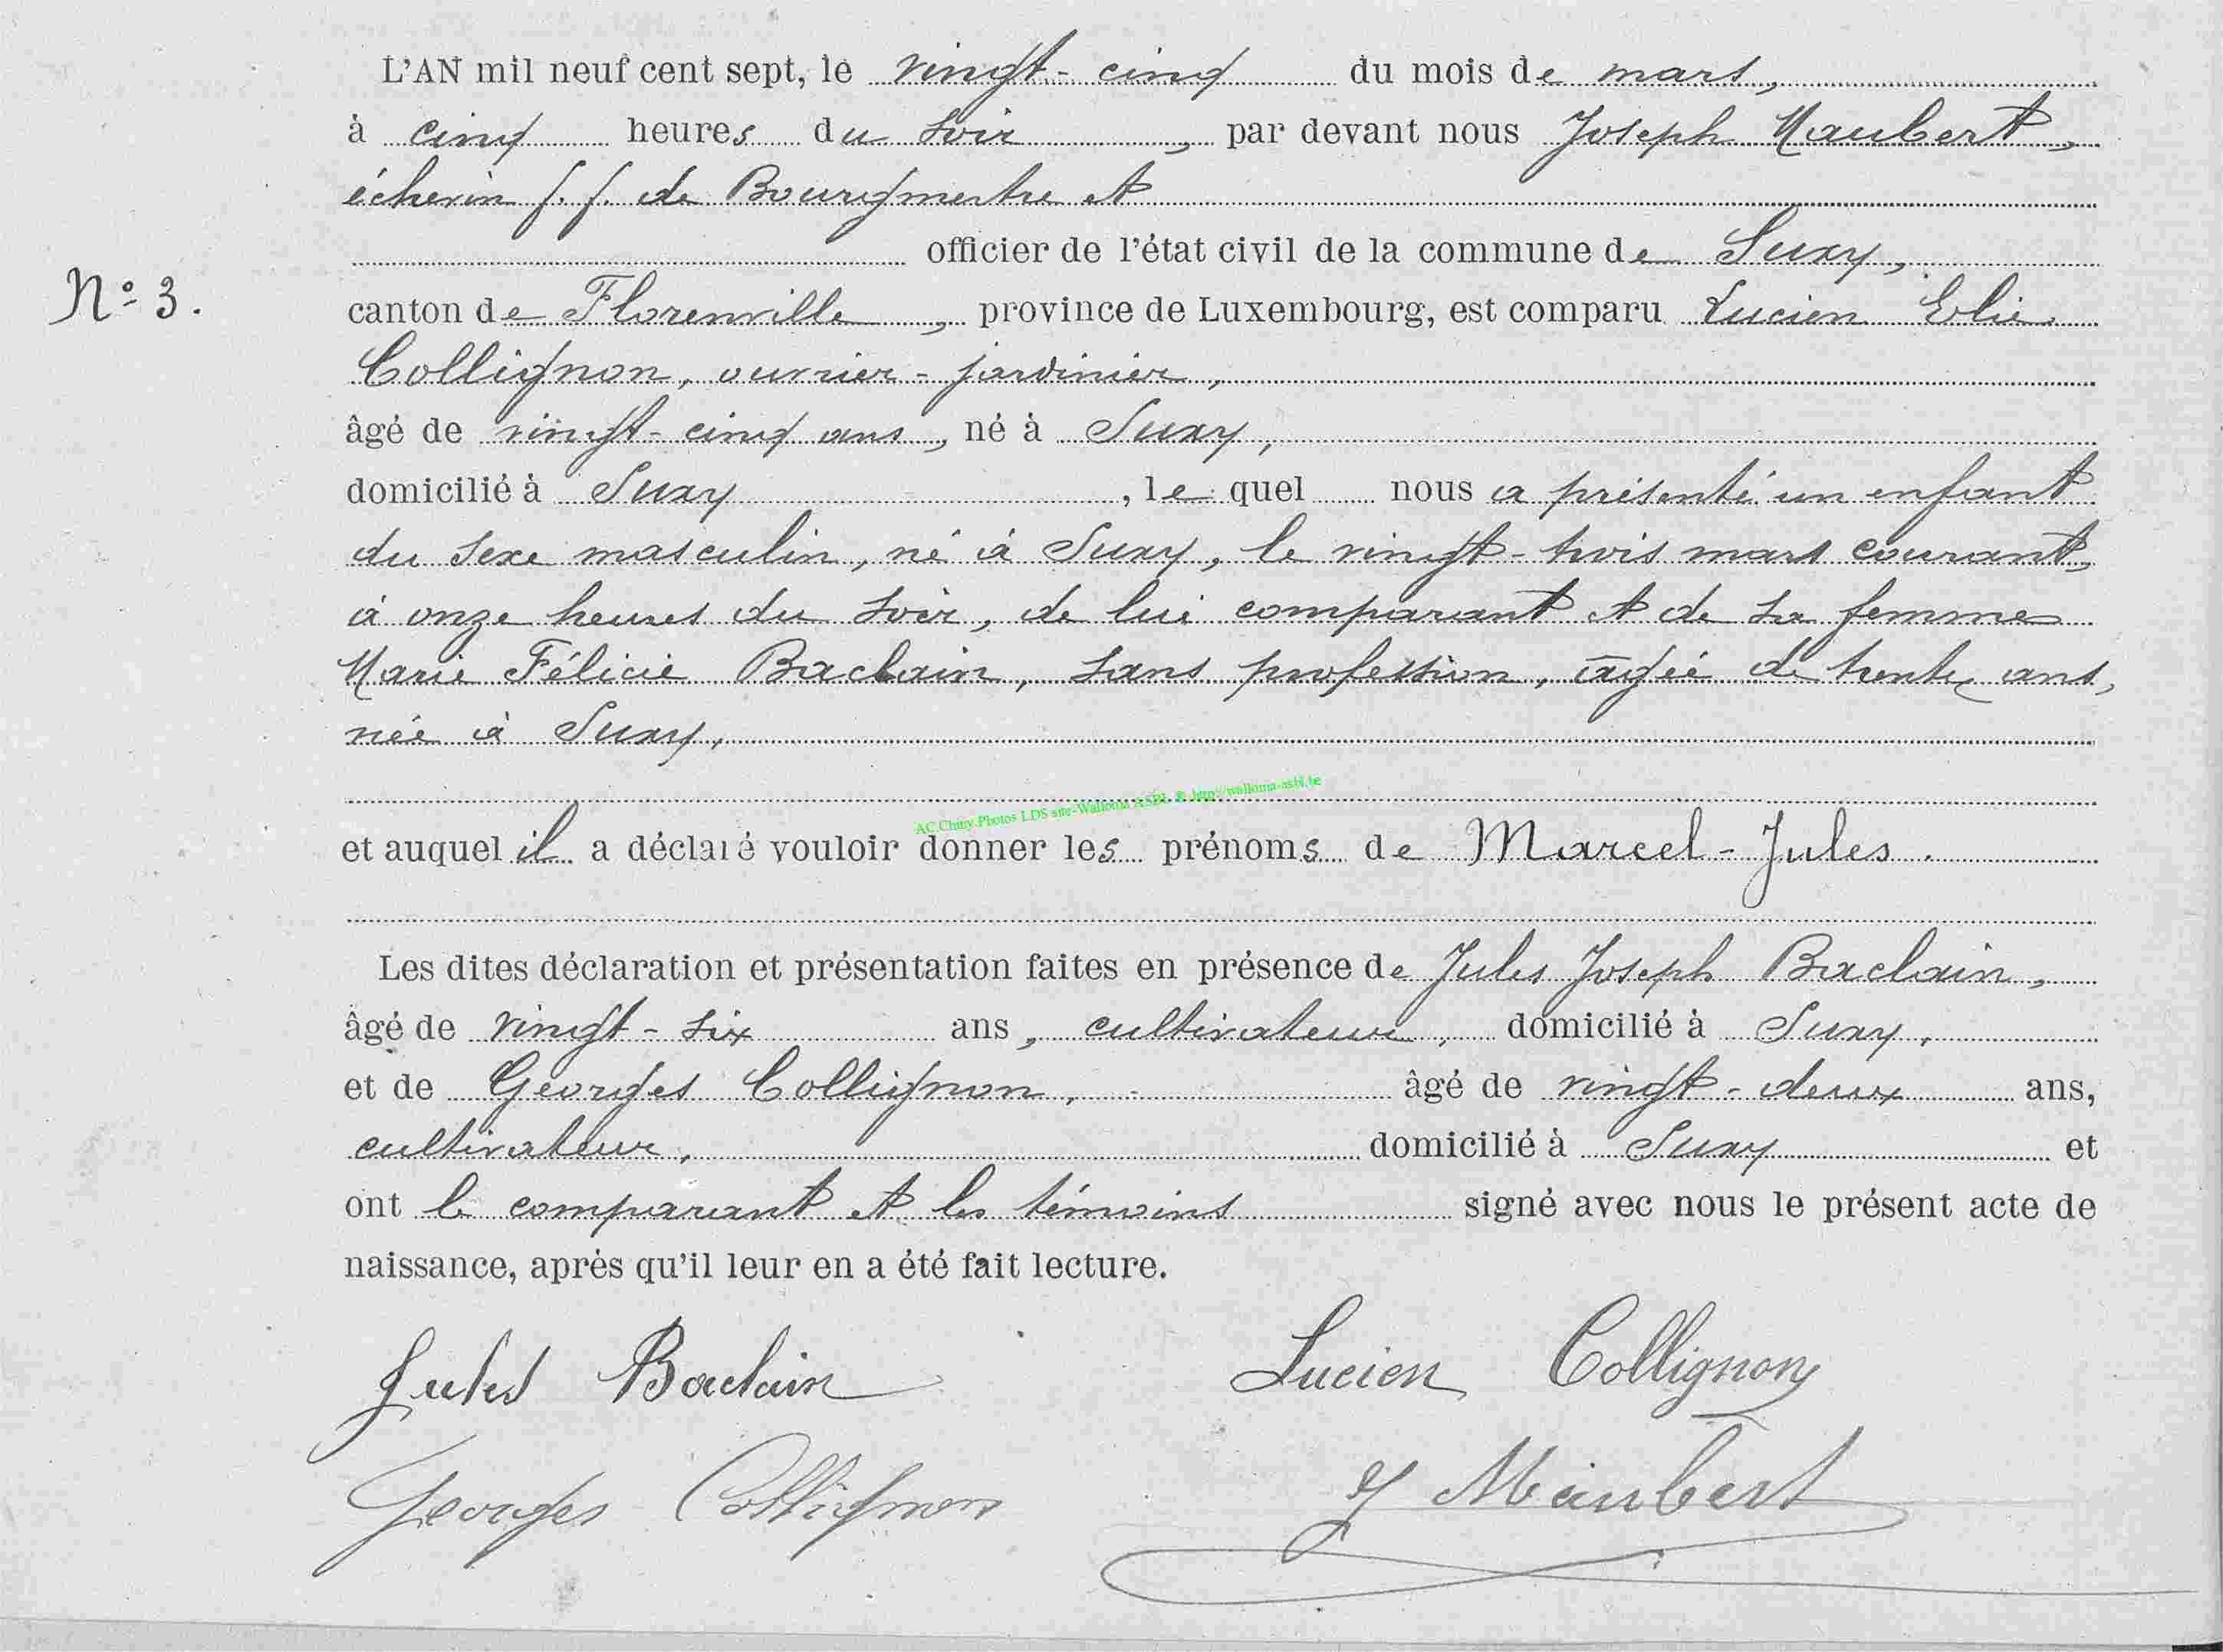 L'AN mil neuf cent sept, le vingt-cinq du mois de mars,
à cinq heures du soir, par devant nous Joseph Maubert,
échevin f.f. de Bourgmestre et
officier de l'état civil de la commune de Suxy,
N° 3.
canton de Florenville, province de Luxembourg, est comparu Lucien Elie
Collignon, ouvrier-jardinier,
âgé de vingt-cinq ans, né à Suxy,
domicilié à Suxy, le quel nous a présenté un enfant
du sexe masculin, né à Suxy, le vingt-trois mars courant,
à onze heures du soir, de lui comparant et de sa femme
Marie Félicie Baclain, sans profession, âgée de trente ans,
née à Suxy,
AC.Chiny.Photos LDS site-Wallonia ASBL © http://wallonia-asbl.be
et auquel il a déclaré vouloir donner les prénoms de Marcel-Jules.
Les dites déclaration et présentation faites en présence de Jules Joseph Baclain,
âgé de vingt-six ans, cultivateur, domicilié à Suxy,
et de Georges Collignon, âgé de vingt-deux ans,
cultivateur, domicilié à Suxy et
ont le comparant et les témoins signé avec nous le présent acte de
naissance, après qu'il leur en a été fait lecture.
Jules Baclain Lucien Collignon
Georges Collignon J Maubert